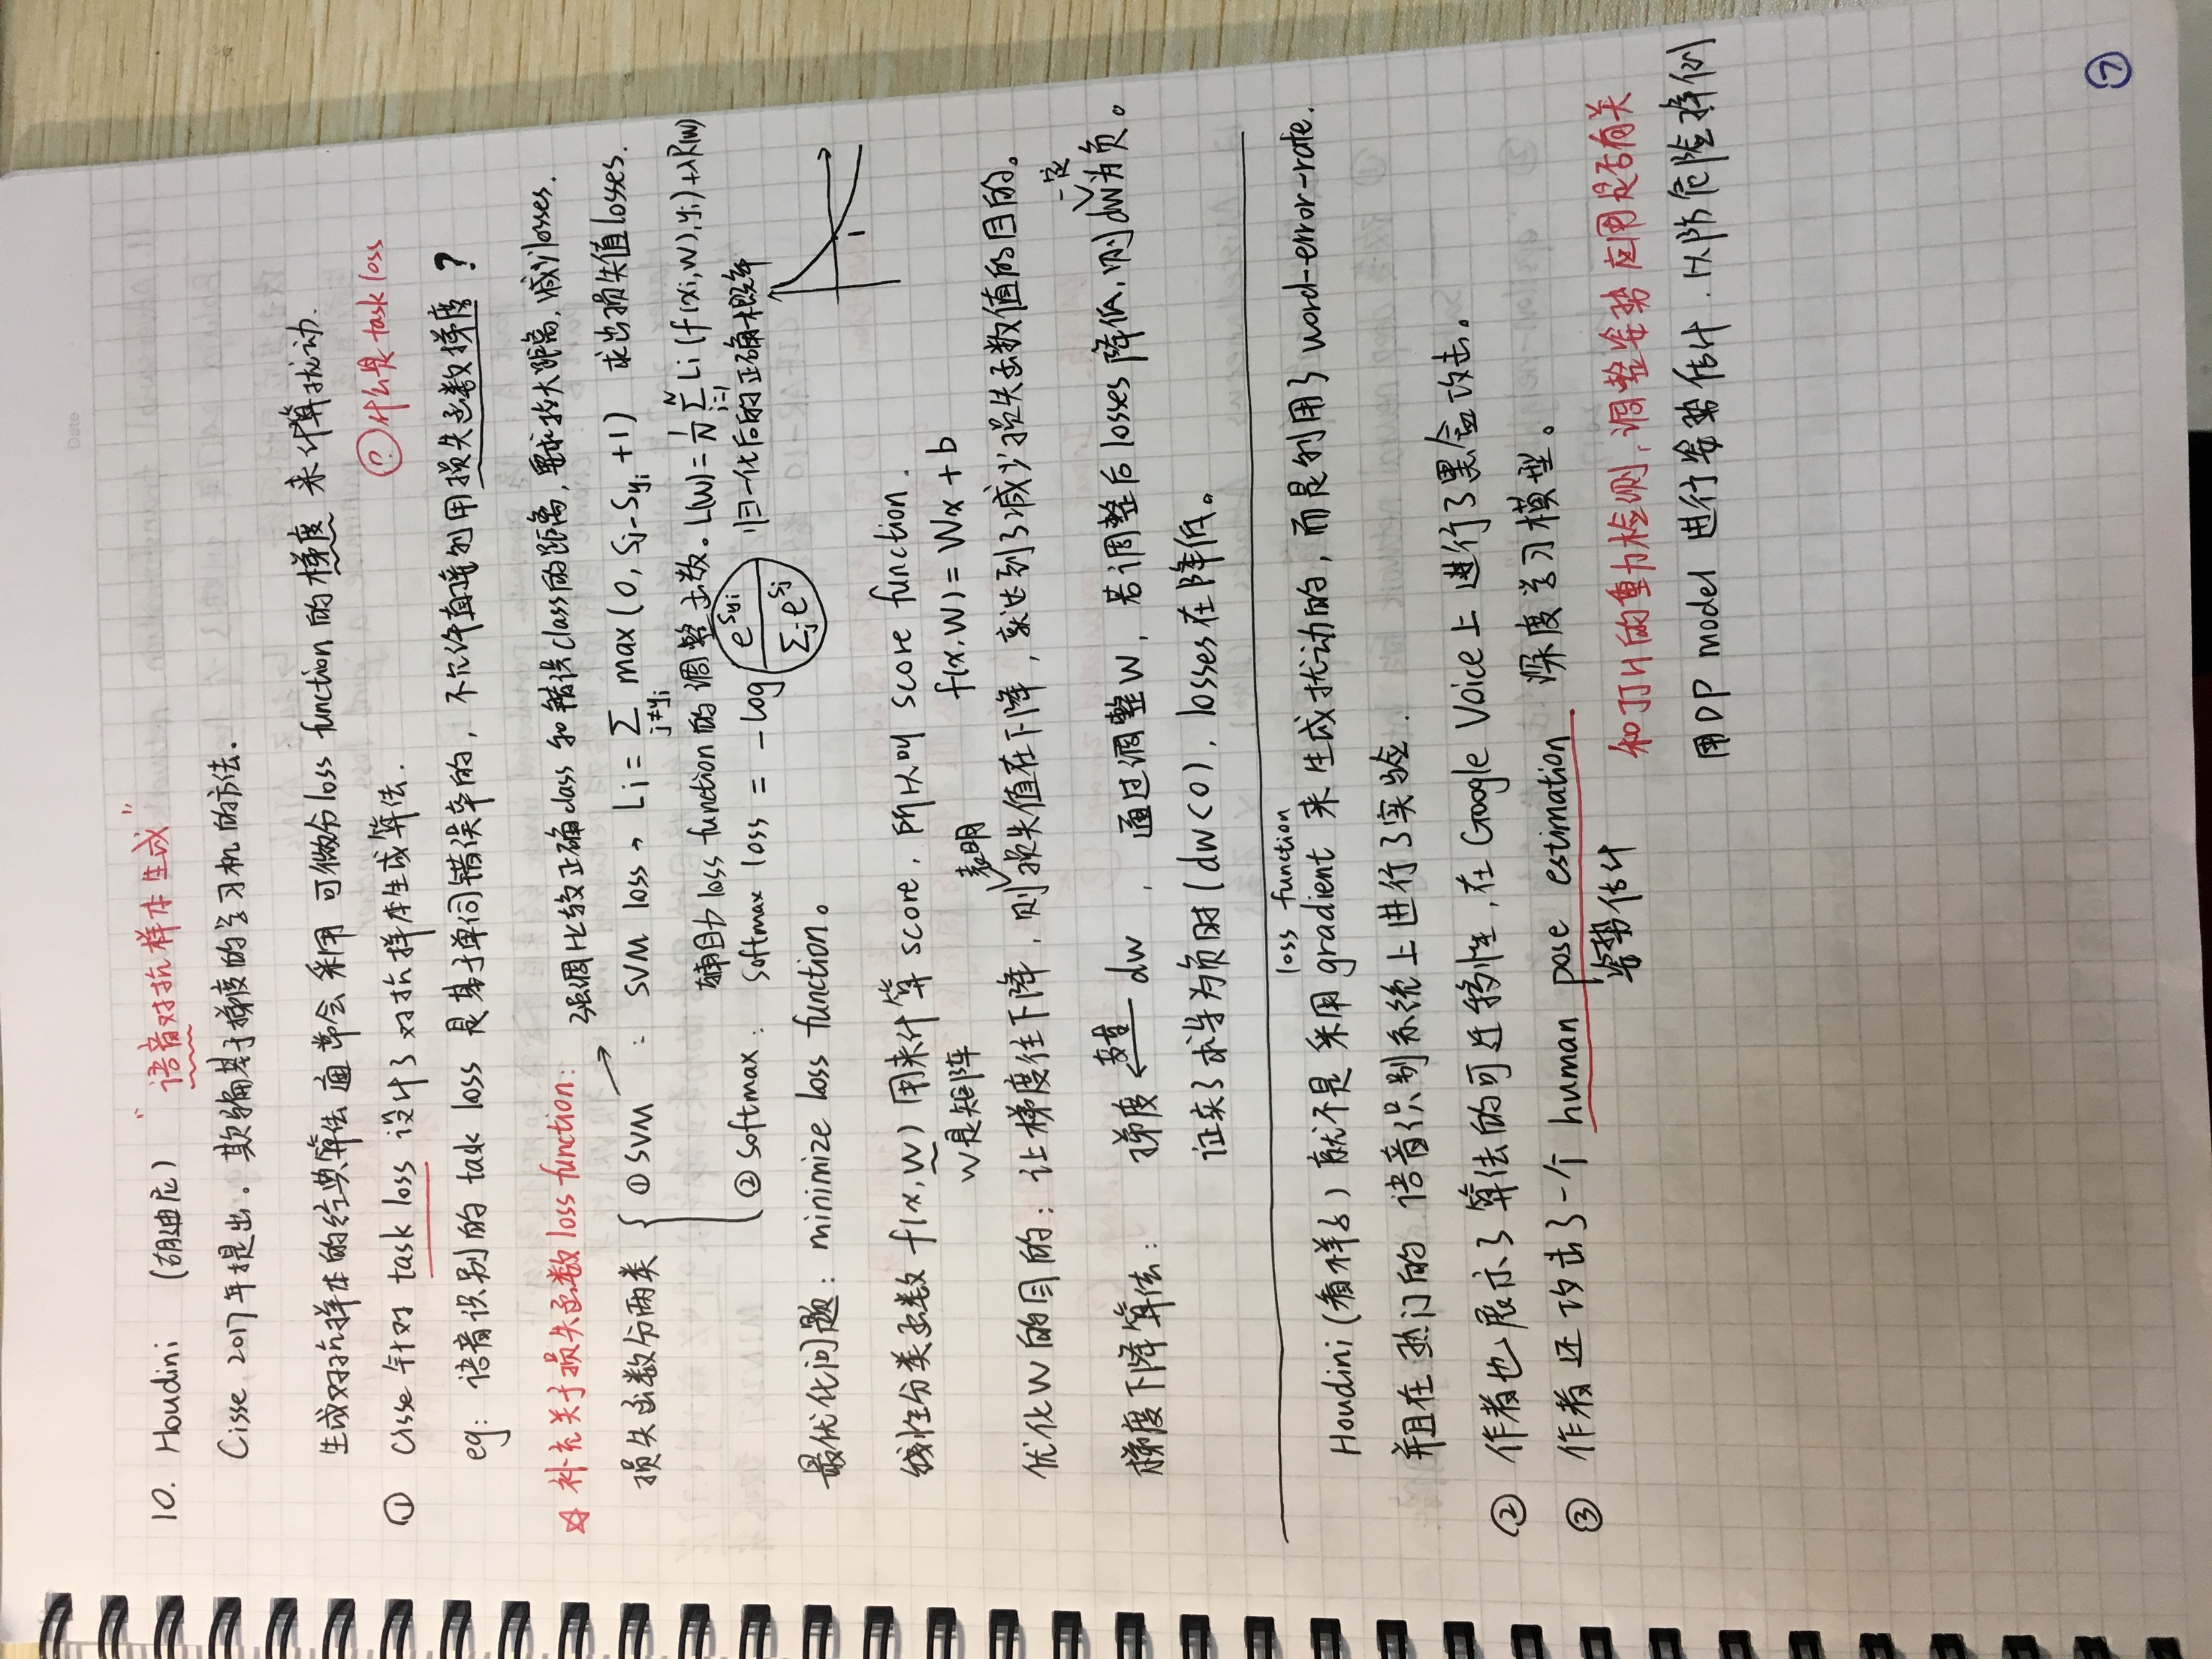 Date
10. Houdini (胡迪尼) “语音对抗样本生成”
Cisse, 2017年提出。欺骗基于梯度的学习机的方法.
生成对抗样本的经典算法通常会采用 可微分loss function的梯度 来计算扰动.
① Cisse 针对 task loss 设计了对抗样本生成算法. ? 什么是task loss
eg: 语音识别的 task loss 是基于单词错误率的, 不允许直接利用损失函数梯度?
☆ 补充关于损失函数loss function:
强调比较正确class和错误class的距离, 要求拉大距离, 减少losses.
损失函数分两类 { ① SVM → : SVM loss, Li = ∑j≠yi max(0, Sj-Syi+1) 求出损失值losses.
辅助loss function的调整函数. L(W)= 1/N ∑i=1^N Li(f(xi,W),yi)+λR(W)
② softmax: softmax loss = -log (e^Syi / ∑j e^Sj) 归一化后的正确概率
1
最优化问题: minimize loss function。
线性分类函数 f(x,W) 用来计算score, 所以叫 score function.
W是矩阵 f(x,W)=Wx+b
优化W的目的: 让梯度往下降, 则表明损失值在下降, 就达到了减少损失函数值的目的。
梯度下降算法: 梯度 ← dw, 通过调整W, 若调整后 losses 降低, 则一定dW为负。
证实了求导为负时(dw<0), losses在降低。
loss function
Houdini (看样子) 就不是采用gradient 来生成扰动的, 而是利用了 word-error-rate.
并且在热门的 语音识别系统上进行了实验.
② 作者也展示了算法的可迁移性, 在Google Voice上进行了黑盒攻击。
③ 作者还攻击了一个 human pose estimation 深度学习模型。
姿势估计
和JJH的重力检测, 调整姿势 应用是否有关
用DP model 进行姿势估计, 以防危险摔倒
⑦